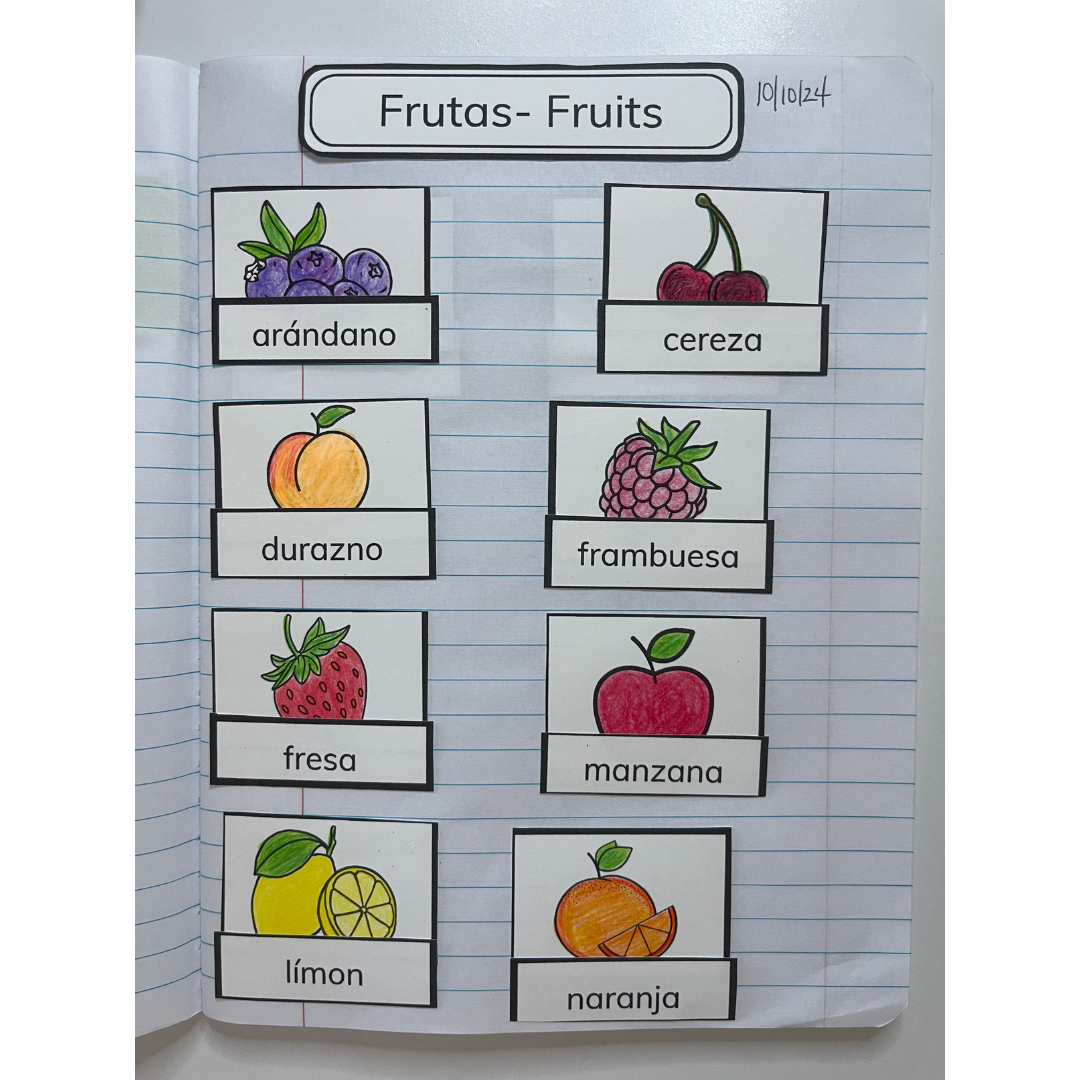 Frutas- Fruits
10/10/24
arándano
cereza
durazno
frambuesa
fresa
manzana
límon
naranja